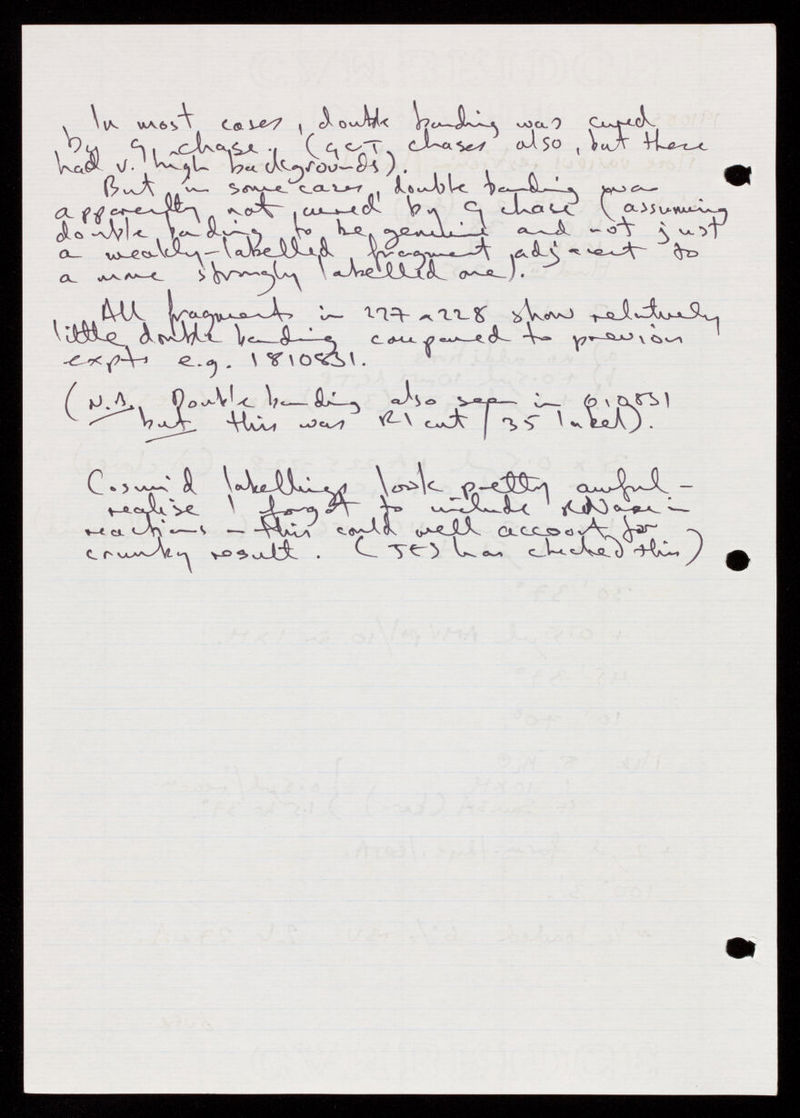 In most cases, double banding was cured
by G chase. (GCT chases also, but these
had v. high backgrounds).
But in some cases, double banding was
apparently not 'cured' by G chase (assuming
double banding to be genuine and not just
a weakly-labelled fragment adjacent to
a more strongly labelled one).
All fragments in 227 228 show relatively
little double banding compared to previous
expts e.g. 180831.
(N.B. Double banding also seen in 010831
but this was RI cut / 35 label).
Cosmid labellings look pretty awful -
realise I forgot to include RNase in
reactions - this could well account for
crunky result. (JES has checked this)